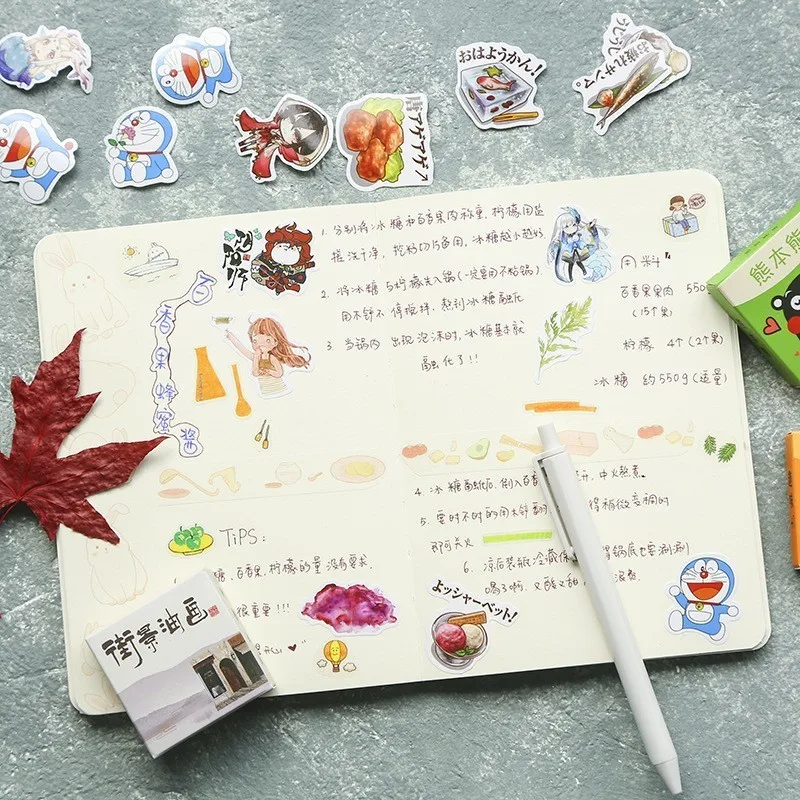 おはようかん!
お疲れサンマ。
アゲアゲ
阴阳师
百香果蜂蜜酱
1. 分别将冰糖和百香果肉称重,柠檬用盐
搓洗干净,挖籽切片备用,冰糖越小越好
2. 将冰糖与柠檬丢入锅(一定要用不粘锅),
用木铲不停搅拌,熬到冰糖融化
3. 当锅内出现泡沫时,冰糖基本就
融化了!!
用料
百香果果肉 550
(15个果)
柠檬 4个(2个果)
冰糖 约550g(适量)
熊本熊
4. 冰糖融化后,倒入百香 中火熬煮。
5. 要时不时的用木铲翻 得稍微变稠的
即可关火
6. 凉后装瓶冷藏保 得锅底也要涮涮
喝了啊,又酸又甜
TiPS:
糖、百香果、柠檬的量没有要求,
很重要!!!
街景油画
よッシャーベット!